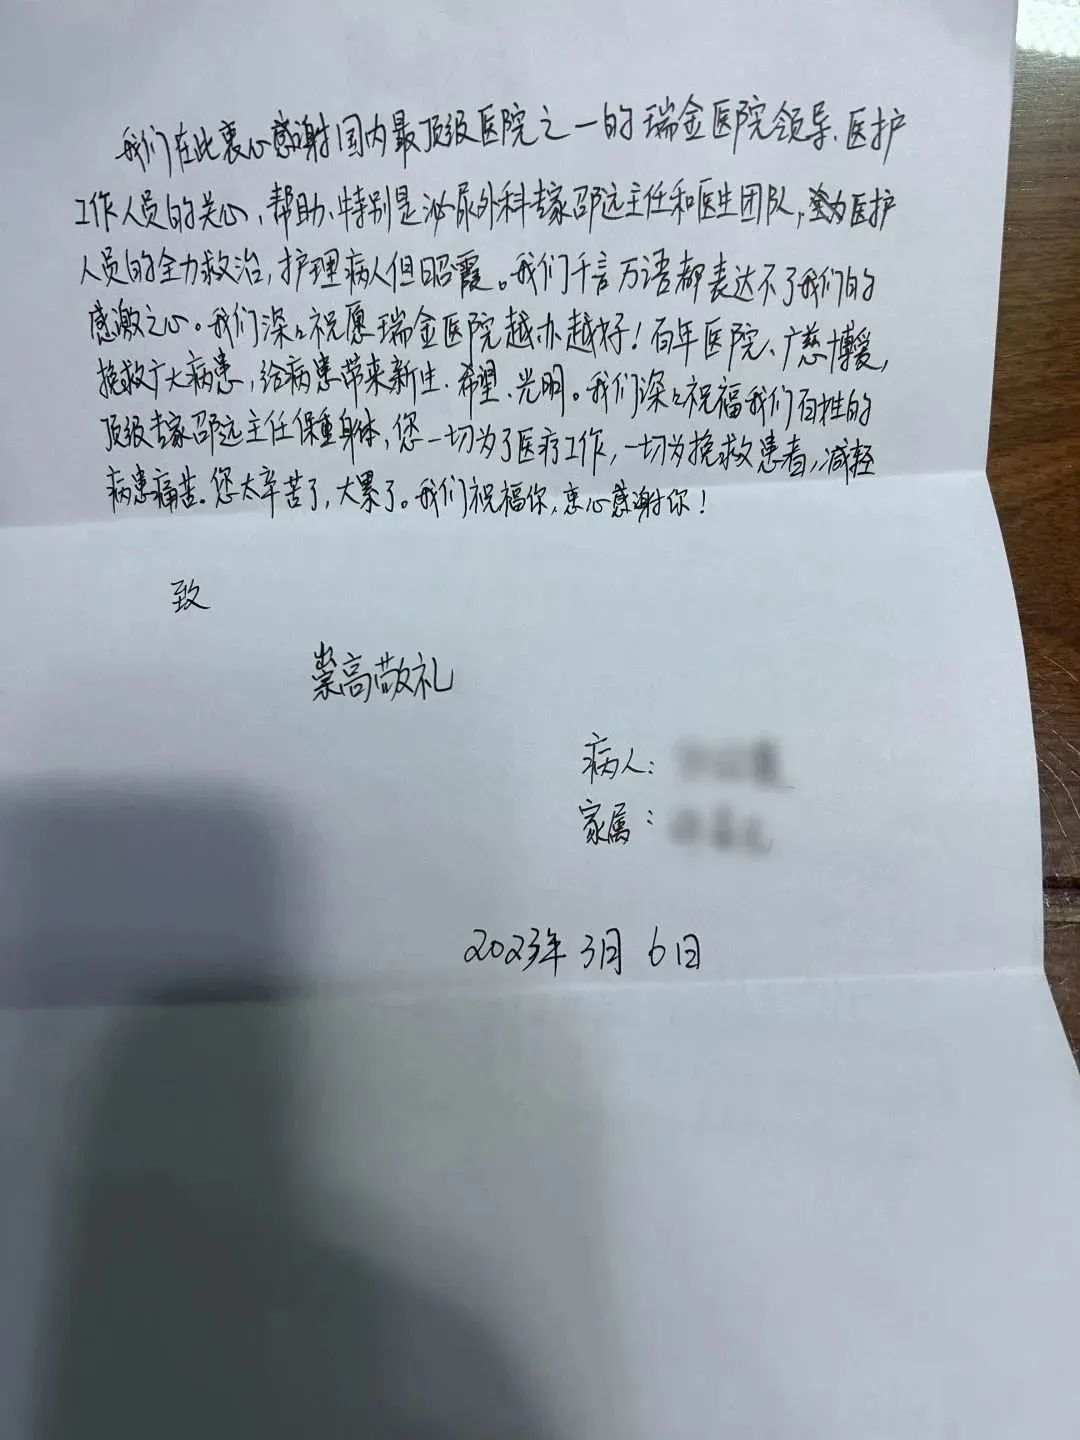 我们在此衷心感谢国内最顶级医院之一的瑞金医院领导、医护
工作人员的关心、帮助、特别是泌尿外科专家邵远主任和医生团队，医护
人员的全力救治，护理病人但昭霞。我们千言万语都表达不了我们的
感激之心。我们深深祝愿瑞金医院越办越好！百年医院、广慈博爱，
挽救广大病患，给病患带来新生、希望、光明。我们深深祝福我们百姓的
顶级专家邵远主任保重身体，您一切为了医疗工作，一切为挽救患者，减轻
病患痛苦。您太辛苦了，太累了。我们祝福你，衷心感谢你！
致
崇高敬礼
病人：
家属：
2023年3月6日